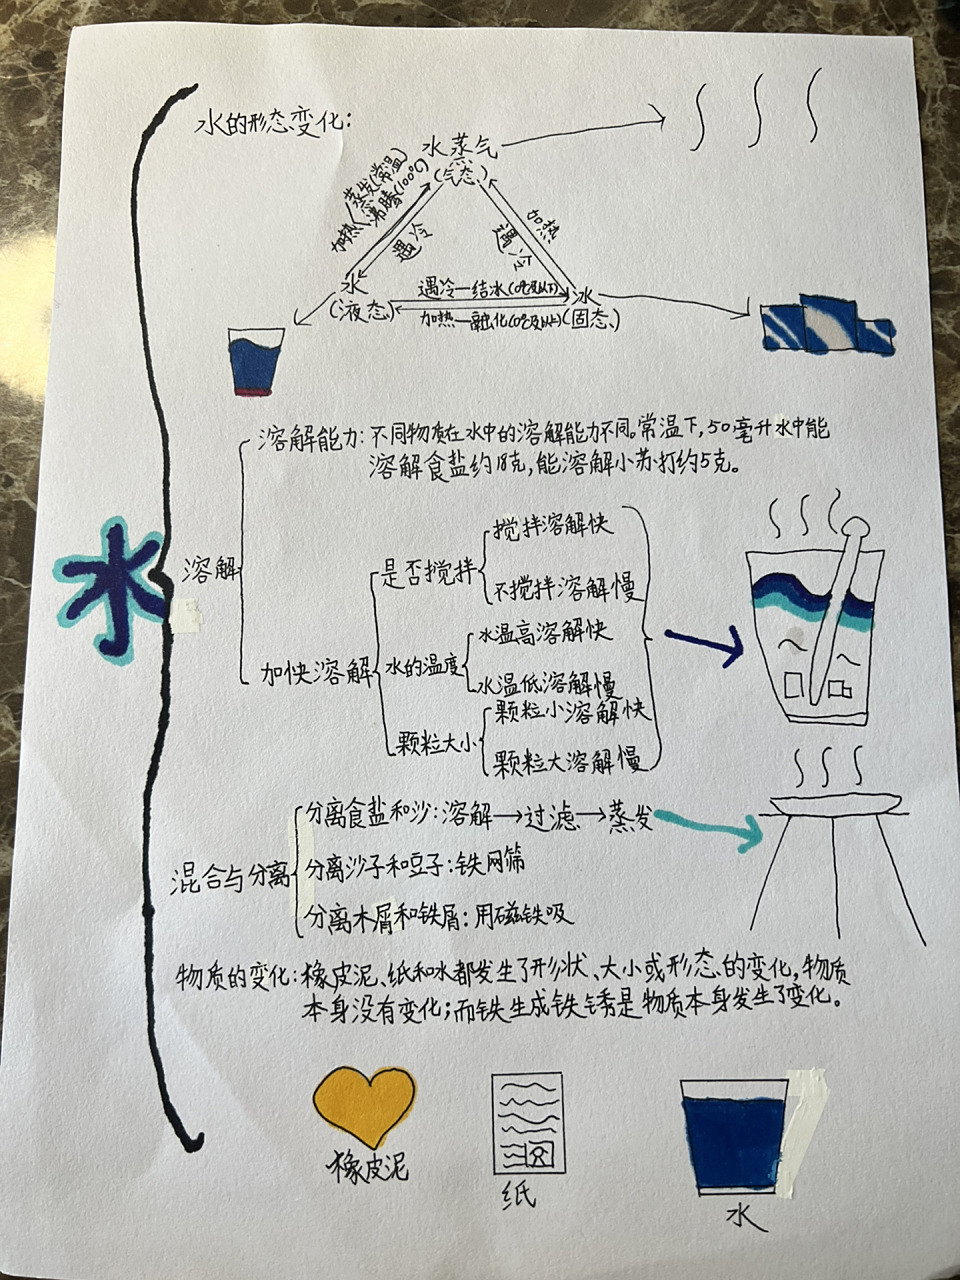 水的形态变化：
水蒸气
（气态）
加热
蒸发（常温）
沸腾（100℃）
遇冷
加热
遇冷
水
（液态）
遇冷—结冰（0℃及以下）
加热—融化（0℃及以上）
冰
（固态）
水
溶解
溶解能力：不同物质在水中的溶解能力不同。常温下，50毫升水中能
溶解食盐约18克，能溶解小苏打约5克。
加快溶解
是否搅拌
搅拌溶解快
不搅拌溶解慢
水的温度
水温高溶解快
水温低溶解慢
颗粒大小
颗粒小溶解快
颗粒大溶解慢
混合与分离
分离食盐和沙：溶解→过滤→蒸发
分离沙子和豆子：铁网筛
分离木屑和铁屑：用磁铁吸
物质的变化：橡皮泥、纸和水都发生了形状、大小或形态的变化，物质
本身没有变化；而铁生成铁锈是物质本身发生了变化。
橡皮泥
纸
水